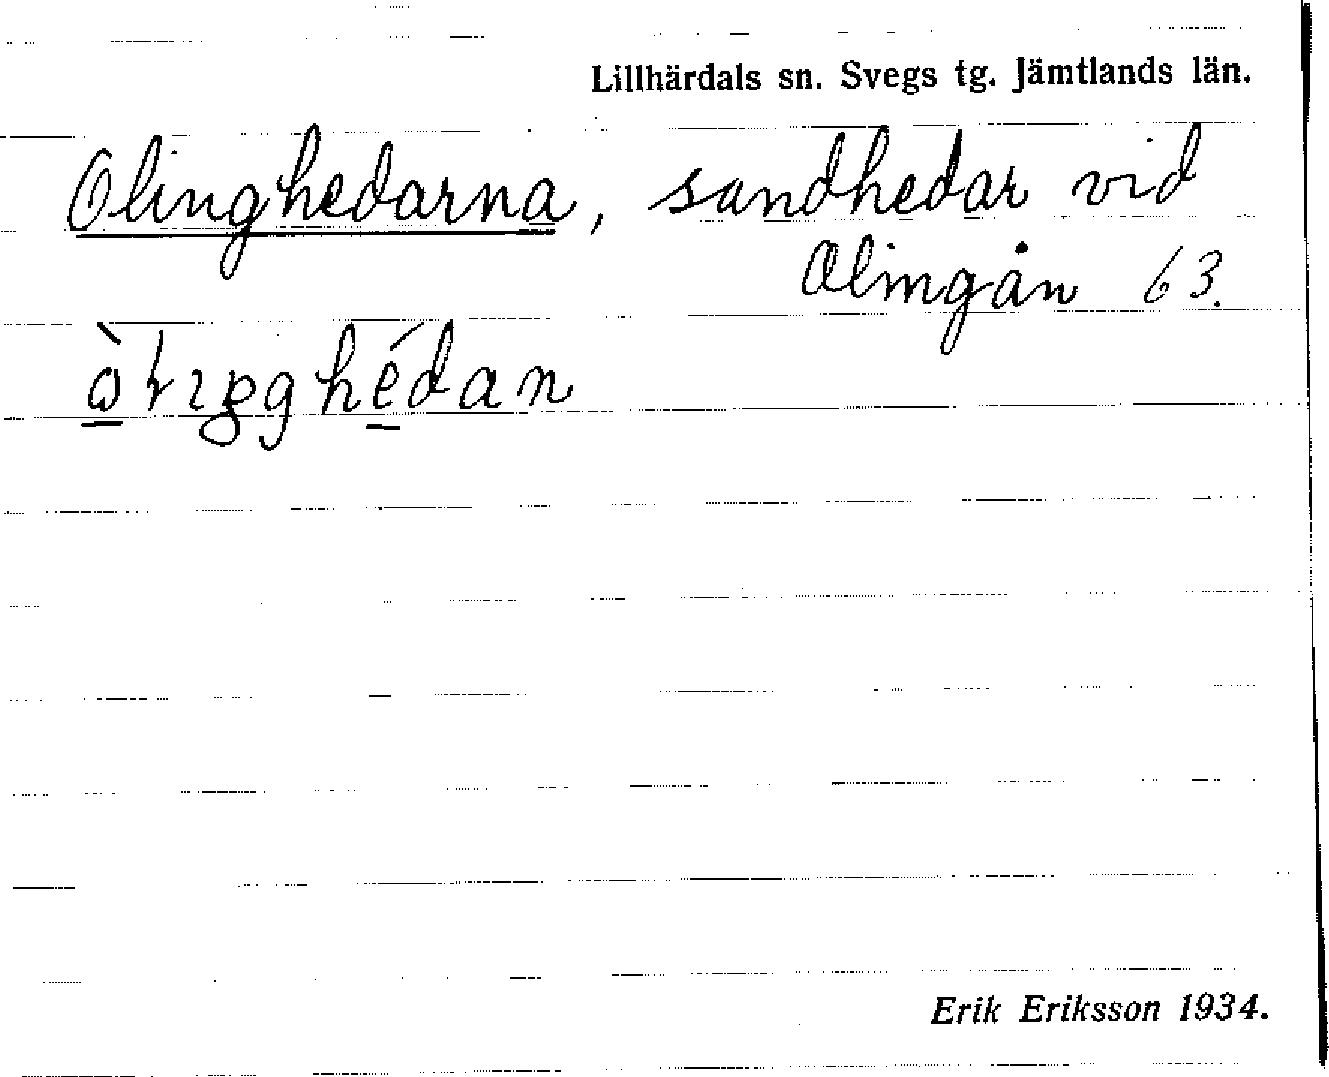 Lillhärdals sn. Svegs tg. Jämtlands län.
Olinghedarna, sandhedar vid
Olingån 63.
Erik Eriksson 1934.